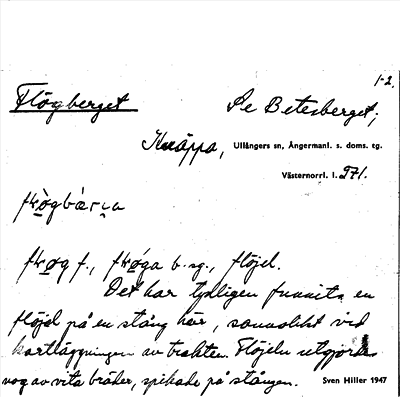 1-2.
Flögberget
Se Betesberget;
Knäppa, Ullångers sn, Ångermanl. s. doms. tg.
Västernorrl. l. 271.
f., b. sg., flöjel.
Det har tydligen funnits en
flöjel på en stång här, sannolikt vid
kartläggningen av trakten. Flöjeln utgjordes
nog av vita bräder, spikade på stången.
Sven Hiller 1947